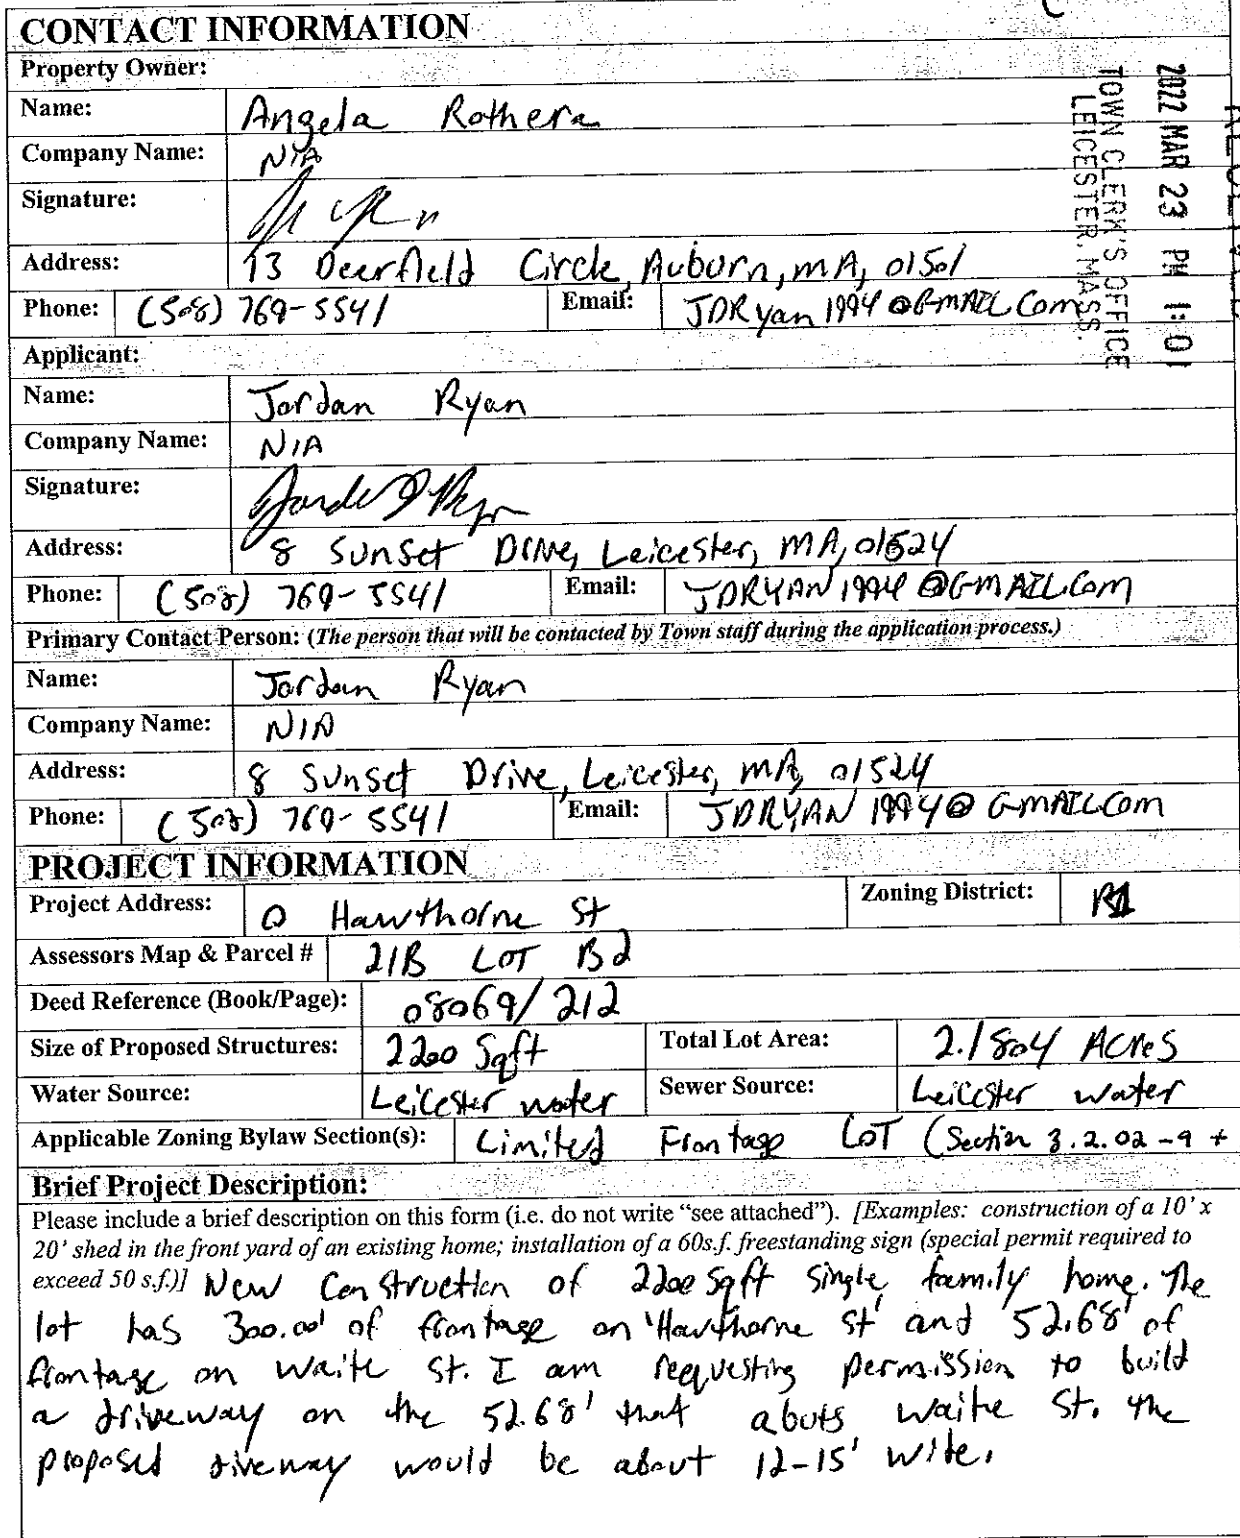 CONTACT INFORMATION
Property Owner:
Name: Angela Rothera
Company Name: N/A
Signature:
Address: 13 Deerfield Circle, Auburn, MA, 01501
Phone: (508) 769-5541 Email: JDRyan1994@GMAIL.Com
Applicant:
Name: Jordan Ryan
Company Name: N/A
Signature:
Address: 8 Sunset Drive, Leicester, MA, 01524
Phone: (508) 769-5541 Email: JDRYAN1994@GMAIL.Com
Primary Contact Person: (The person that will be contacted by Town staff during the application process.)
Name: Jordan Ryan
Company Name: N/A
Address: 8 Sunset Drive, Leicester, MA, 01524
Phone: (508) 769-5541 Email: JDRYAN1994@GMAIL.Com
PROJECT INFORMATION
Project Address: 0 Hawthorne St Zoning District: R1
Assessors Map & Parcel # 21B LOT B2
Deed Reference (Book/Page): 08069/212
Size of Proposed Structures: 2200 Sqft Total Lot Area: 2.1804 Acres
Water Source: Leicester water Sewer Source: Leicester water
Applicable Zoning Bylaw Section(s): Limited Frontage LOT (Section 3.2.02-9 +
Brief Project Description:
Please include a brief description on this form (i.e. do not write "see attached"). [Examples: construction of a 10' x
20' shed in the front yard of an existing home; installation of a 60s.f. freestanding sign (special permit required to
exceed 50 s.f.)] New Construction of 2200 Sqft Single family home. The
lot has 300.00' of frontage on Hawthorne St and 52.68' of
frontage on Waite St. I am requesting permission to build
a driveway on the 52.68' that abuts Waite St. The
proposed driveway would be about 12-15' wide.
2022 MAR 23 PM 1:01
TOWN CLERK'S OFFICE
LEICESTER, MASS.